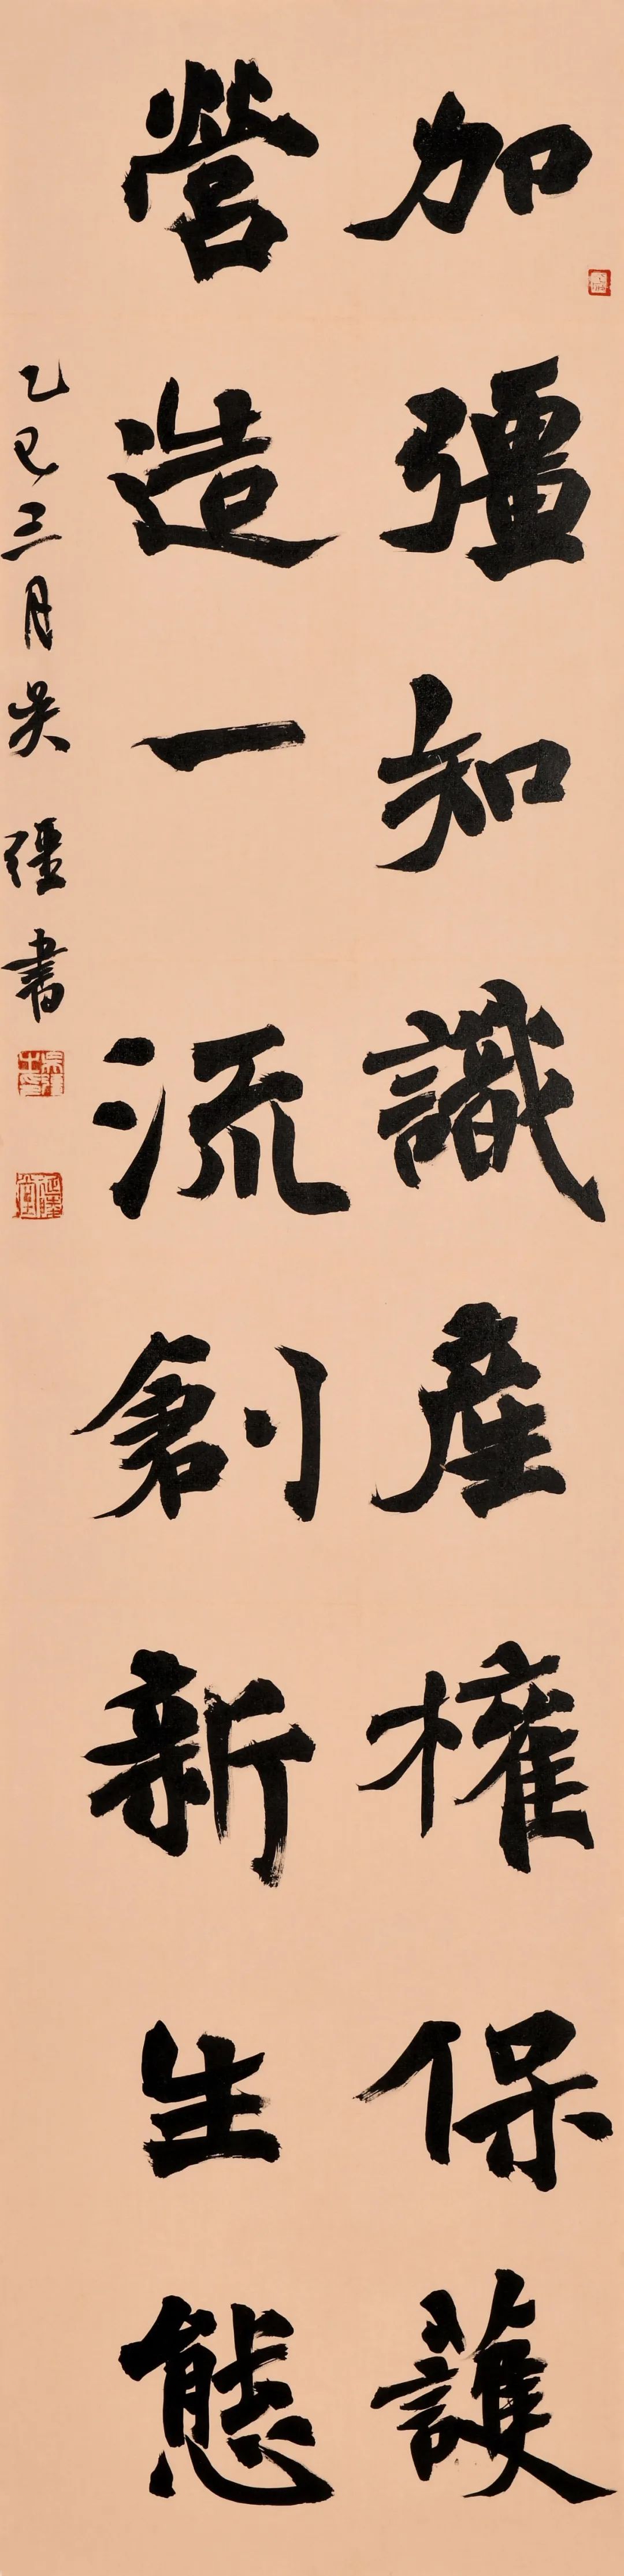 加彊知識産權保護
營造一流創新生態
乙巳三月吴彊書